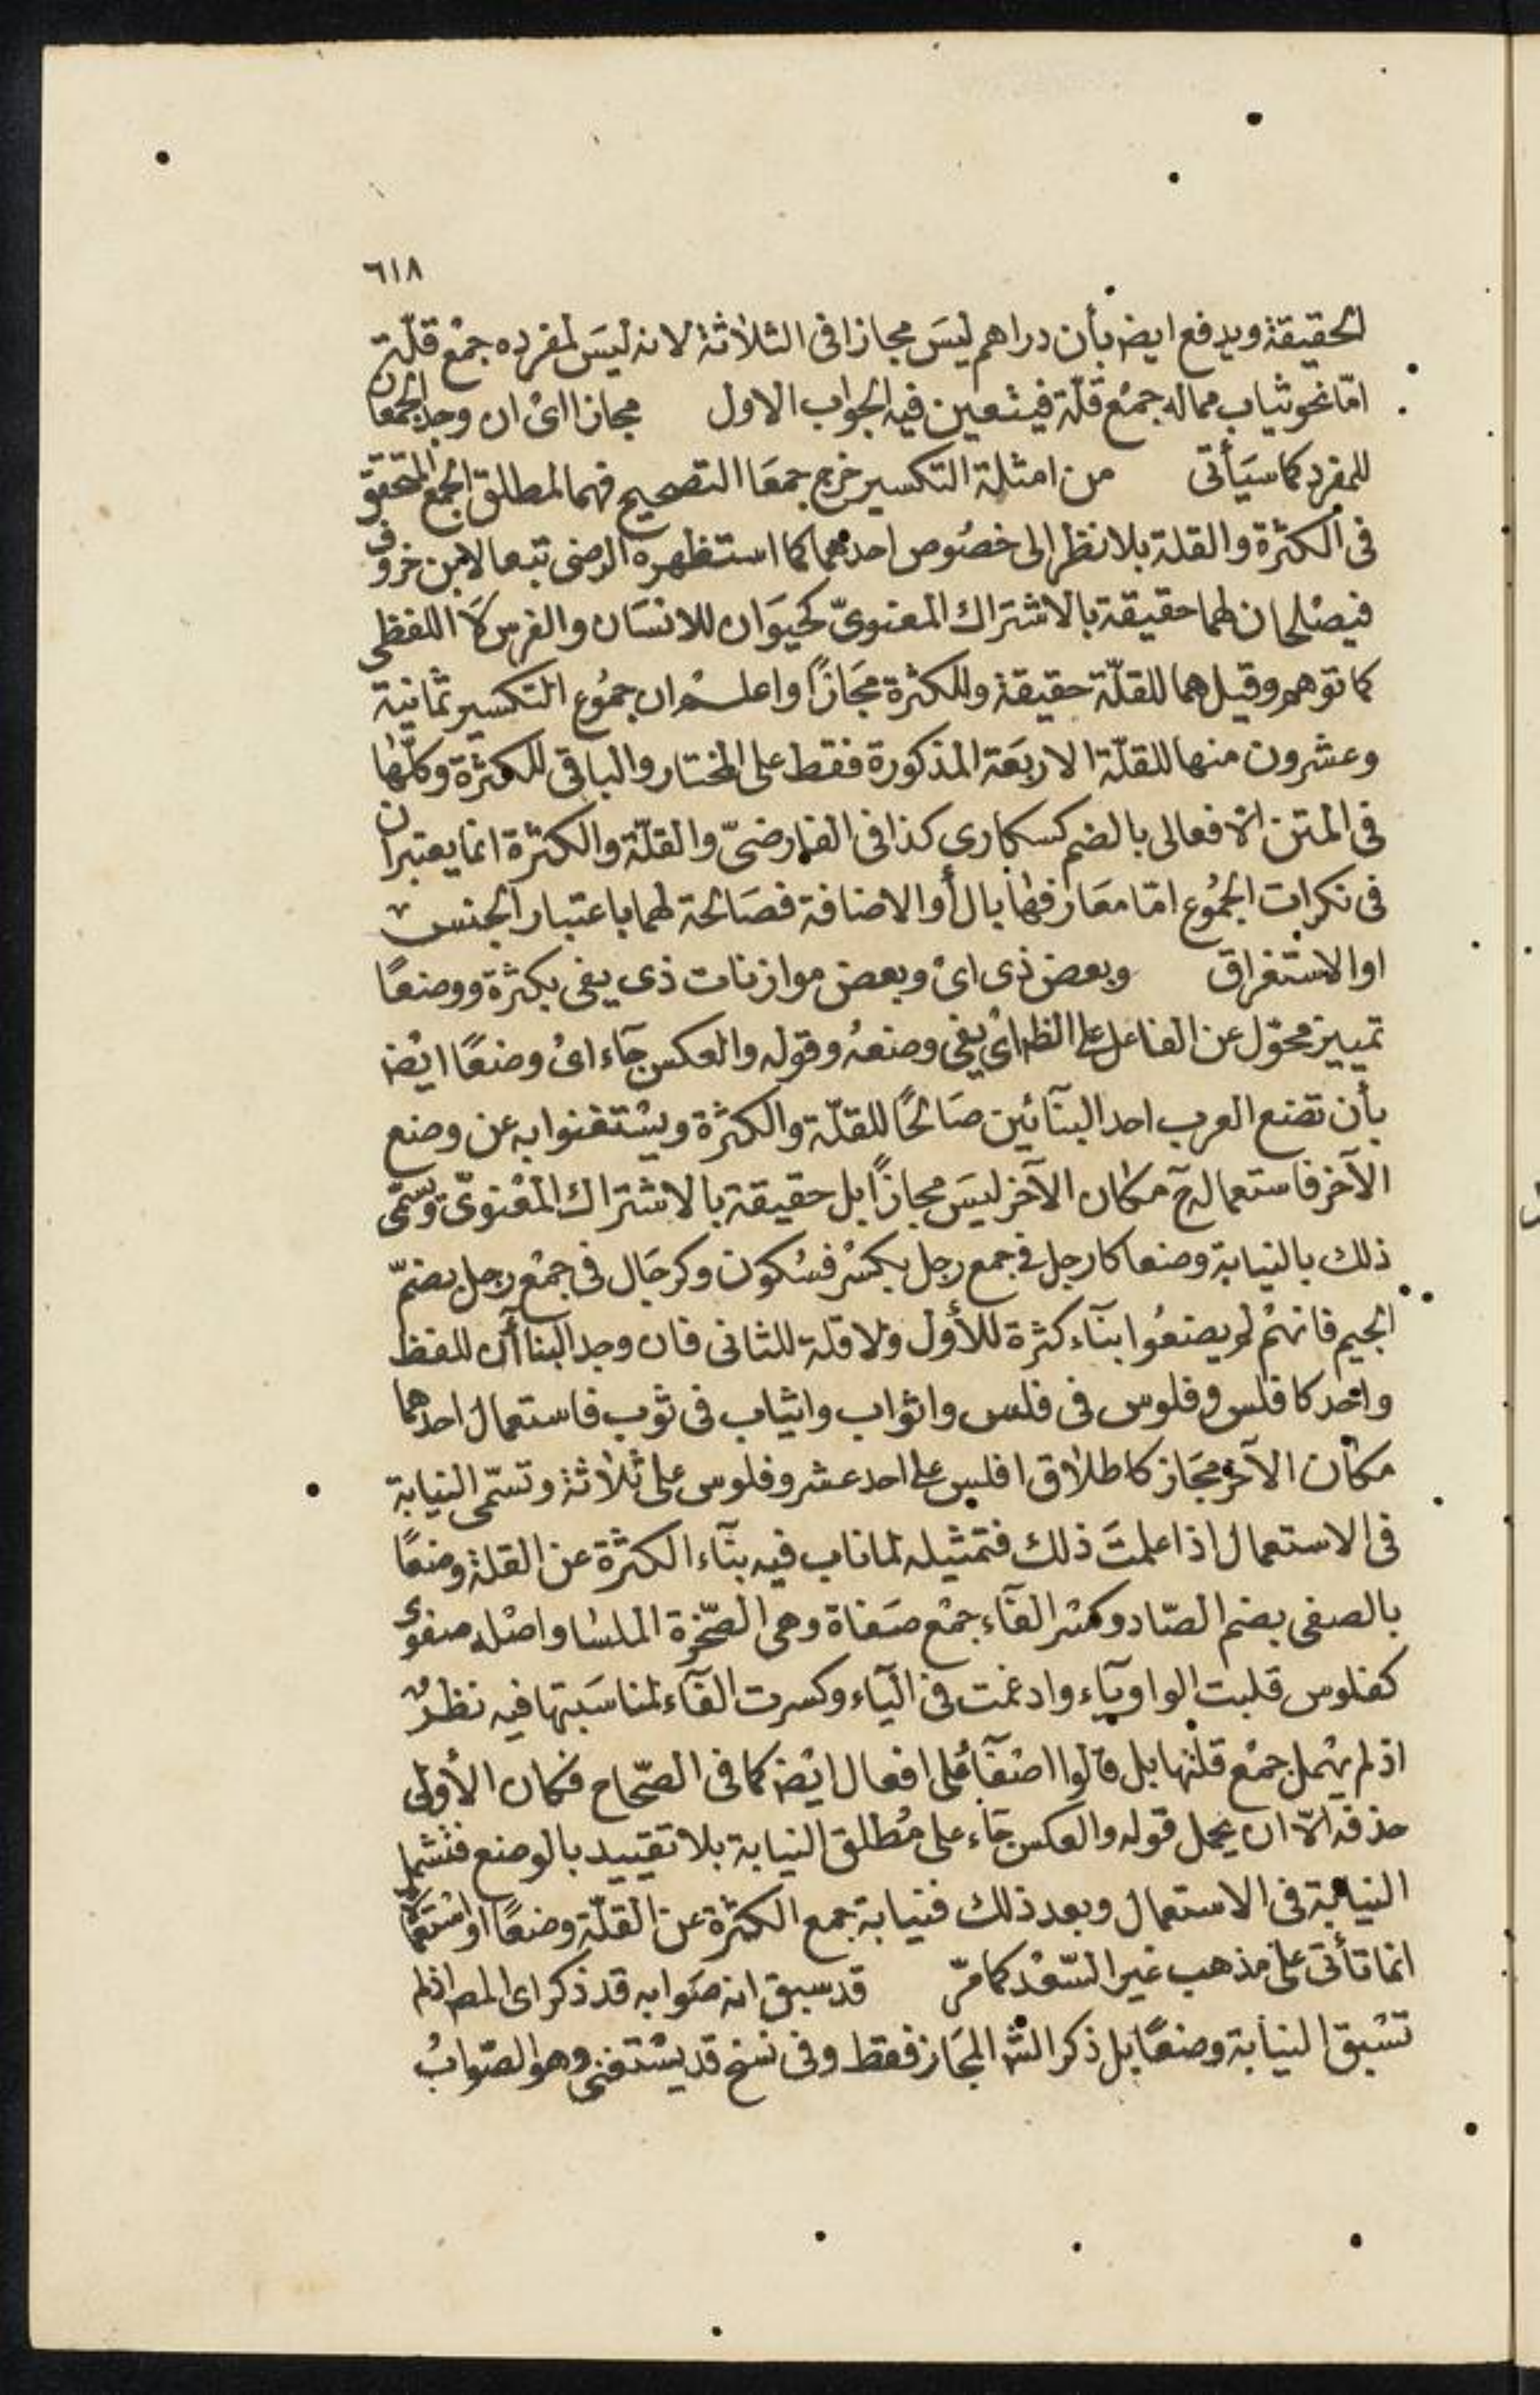 ٦١٨
الحقيقة ويدفع ايضا بأن دراهم ليسَ مجازا فى الثلاثة لانه ليسَ لمفرده جمْع قلّة
امّا نحو ثياب مما له جمْع قلّة فيتعين فيه الجواب الاول مجازا اىْ ان وجد الجمعان
للمفرد كما سيَأتى من امثلة التكسير خرج جمعَا التصحيح فهما لمطلق الجمع المتحقق
فى الكثرة والقلة بلا نظر الى خصُوص احدهما كما استظهره الرضى تبعا لابن خروف
فيصْلحان لهما حقيقة بالاشتراك المعنوىّ كحيَوان للانسَان والفرس لَا اللفظى
كما توهم وقيل هما للقلّة حقيقة وللكثرة مجَازًا واعلم ان جمُوع التكسير ثمانية
وعشرون منها للقلّة الاربَعة المذكورة فقط على المختار والباقى للكثرة وكلّها
فى المتن الا فعالى بالضم كسكارى كذا فى الفارضىّ والقلّة والكثرة انما يعتبران
فى نكرات الجمُوع امّا معَارفها بال أو الاضافة فصَالحة لهما باعتبار الجنس
او الاستغراق وبعض ذى اىْ وبعض موازنات ذى يفى بكثرة ووضعًا
تمييز محوّل عن الفاعل على الظ اىْ يفى وضعهُ وقوله والعكس جآء اىْ وضعًا ايْضا
بأن تضع العرب احد البنآئين صَالحًا للقلّة والكثرة ويسْتغنوا به عن وضع
الآخر فاستعماله ح مكان الآخر ليسَ مجازًا بل حقيقة بالاشتراك المعْنوىّ ويسَمّى
ذلك بالنيابة وضعا كارجل فى جمع رجل بكسْر فسُكون وكرجَال فى جمْع رجل بضمّ
الجيم فانهمْ لم يضعُوا بنآء كثرة للأول ولا قلة للثانى فان وجد البناآن للفظ
واحد كافلس وفلوس فى فلس واثواب واثياب فى ثوب فاستعمال احدهما
مكان الآخر مجَاز كاطلاق افلس على احد عشر وفلوس على ثلاثة وتسَمّى النيابة
فى الاستعمال اذا علمتَ ذلك فتمثيله لما ناب فيه بنآء الكثرة عن القلة وضعًا
بالصفى بضم الصّاد وكسْر الفآء جمْع صَفاة وهى الصّخرة الملسَا واصْله صفوى
كفلوس قلبت الواو يآء وادغمت فى اليآء وكسرت الفآء لمناسَبتها فيه نظرٌ
اذ لم يهْمل جمْع قلتها بل قالوا اصْفآ على افعال ايْضا كما فى الصّحاح فكان الأولى
حذفه الّا ان يحمل قوله والعكس جآء على مُطلق النيابة بلا تقييد بالوضع فتشمل
النيابة فى الاستعمال وبعد ذلك فنيابة جمع الكثرة عن القلّة وضعًا او استعمَالا
انما تأتى على مذهب غير السّعْد كما مرّ قد سبق انه صَوابه قد ذكر اى المص اذ لم
تسْبق النيابة وضعًا بل ذكر الش المجَاز فقط وفى نسخ قد يسْتغنى وهو الصّوابُ